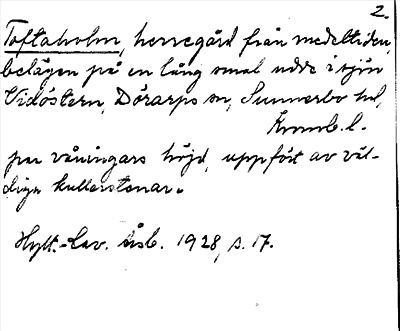 2.
Toftaholm, herregård från medeltiden,
belägen på en lång smal udde i sjön
Vidöstern, Dörarps sn, Sunnerbo hd,
Kronob. l.
våningars höjd, uppfört av väl-
diga kullerstenar.
Hylt.-Cav. årsb. 1928, s. 17.